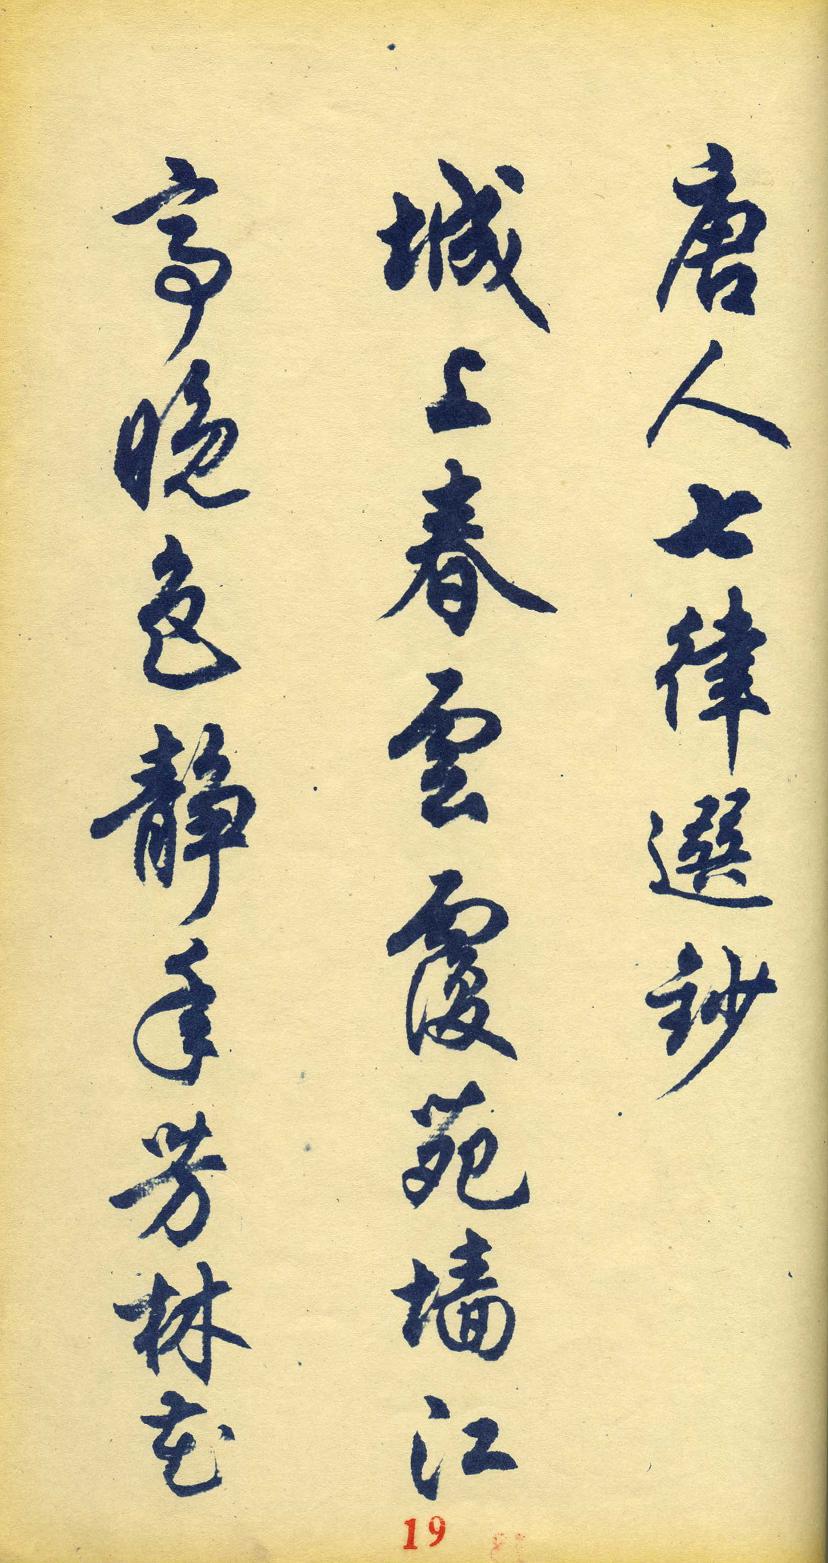 唐人七律選鈔
城上春雲覆苑墙江
亭晚色静年芳林花
19